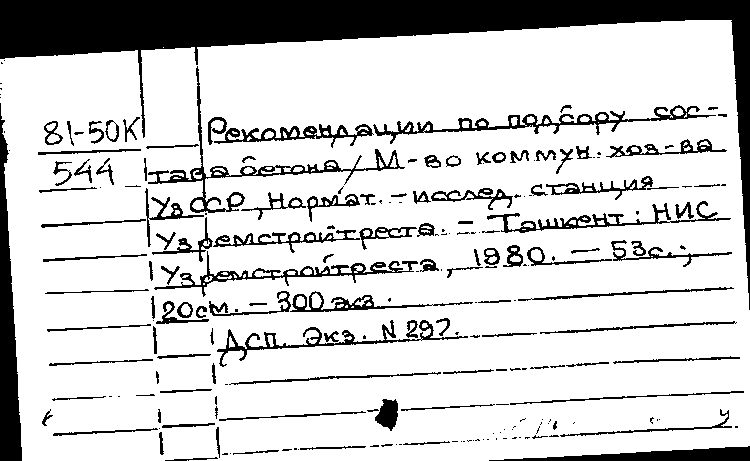 81-50К Рекомендации по подбору сос-
544 тава бетона / М-во коммун. хоз-ва
УзССР, Нормат.-исслед. станция
Узремстройтреста. - Ташкент: НИС
Узремстройтреста, 1980. - 53с.;
20см. - 300 экз.
ДСП. Экз. N 297.
У